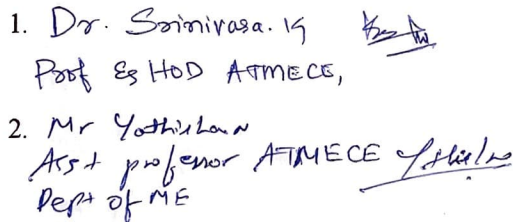 1. Dr. Srinivasa. K
Prof & HOD ATMECE,
2. Mr Yothishan
Asst professor ATMECE
Dept of ME